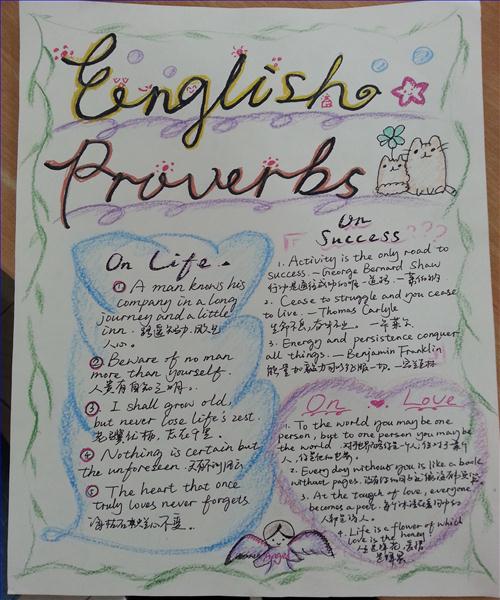 English
Proverbs
On Life
① A man knows his
company in a long
journey and a little
inn. 路遥知马力,
人心。
② Beware of no man
more than yourself.
人贵有自知之明。
③ I shall grow old,
but never lose life's zest.
④ Nothing is certain but
the unforeseen.
⑤ The heart that once
truly loves never forgets
海枯石烂心不变。
On
Success ???
1. Activity is the only road to
success. — George Bernard Shaw
行动是通往成功的唯一道路
2. Cease to struggle and you cease
to live. — Thomas Carlyle
生命不息,奋斗不止。
3. Energy and persistence conquer
all things. — Benjamin Franklin
能量加毅力可以征服一切。
On Love
1. To the world you may be one
person, but to one person you may be
the world. 对于世界而言,你是一个人,但对于某个
人,你是他的世界。
2. Every day without you is like a book
without pages.
3. At the touch of love, everyone
becomes a poet.
人都是诗人。
4. Life is a flower of which
love is the honey!
人生是花,
Angel